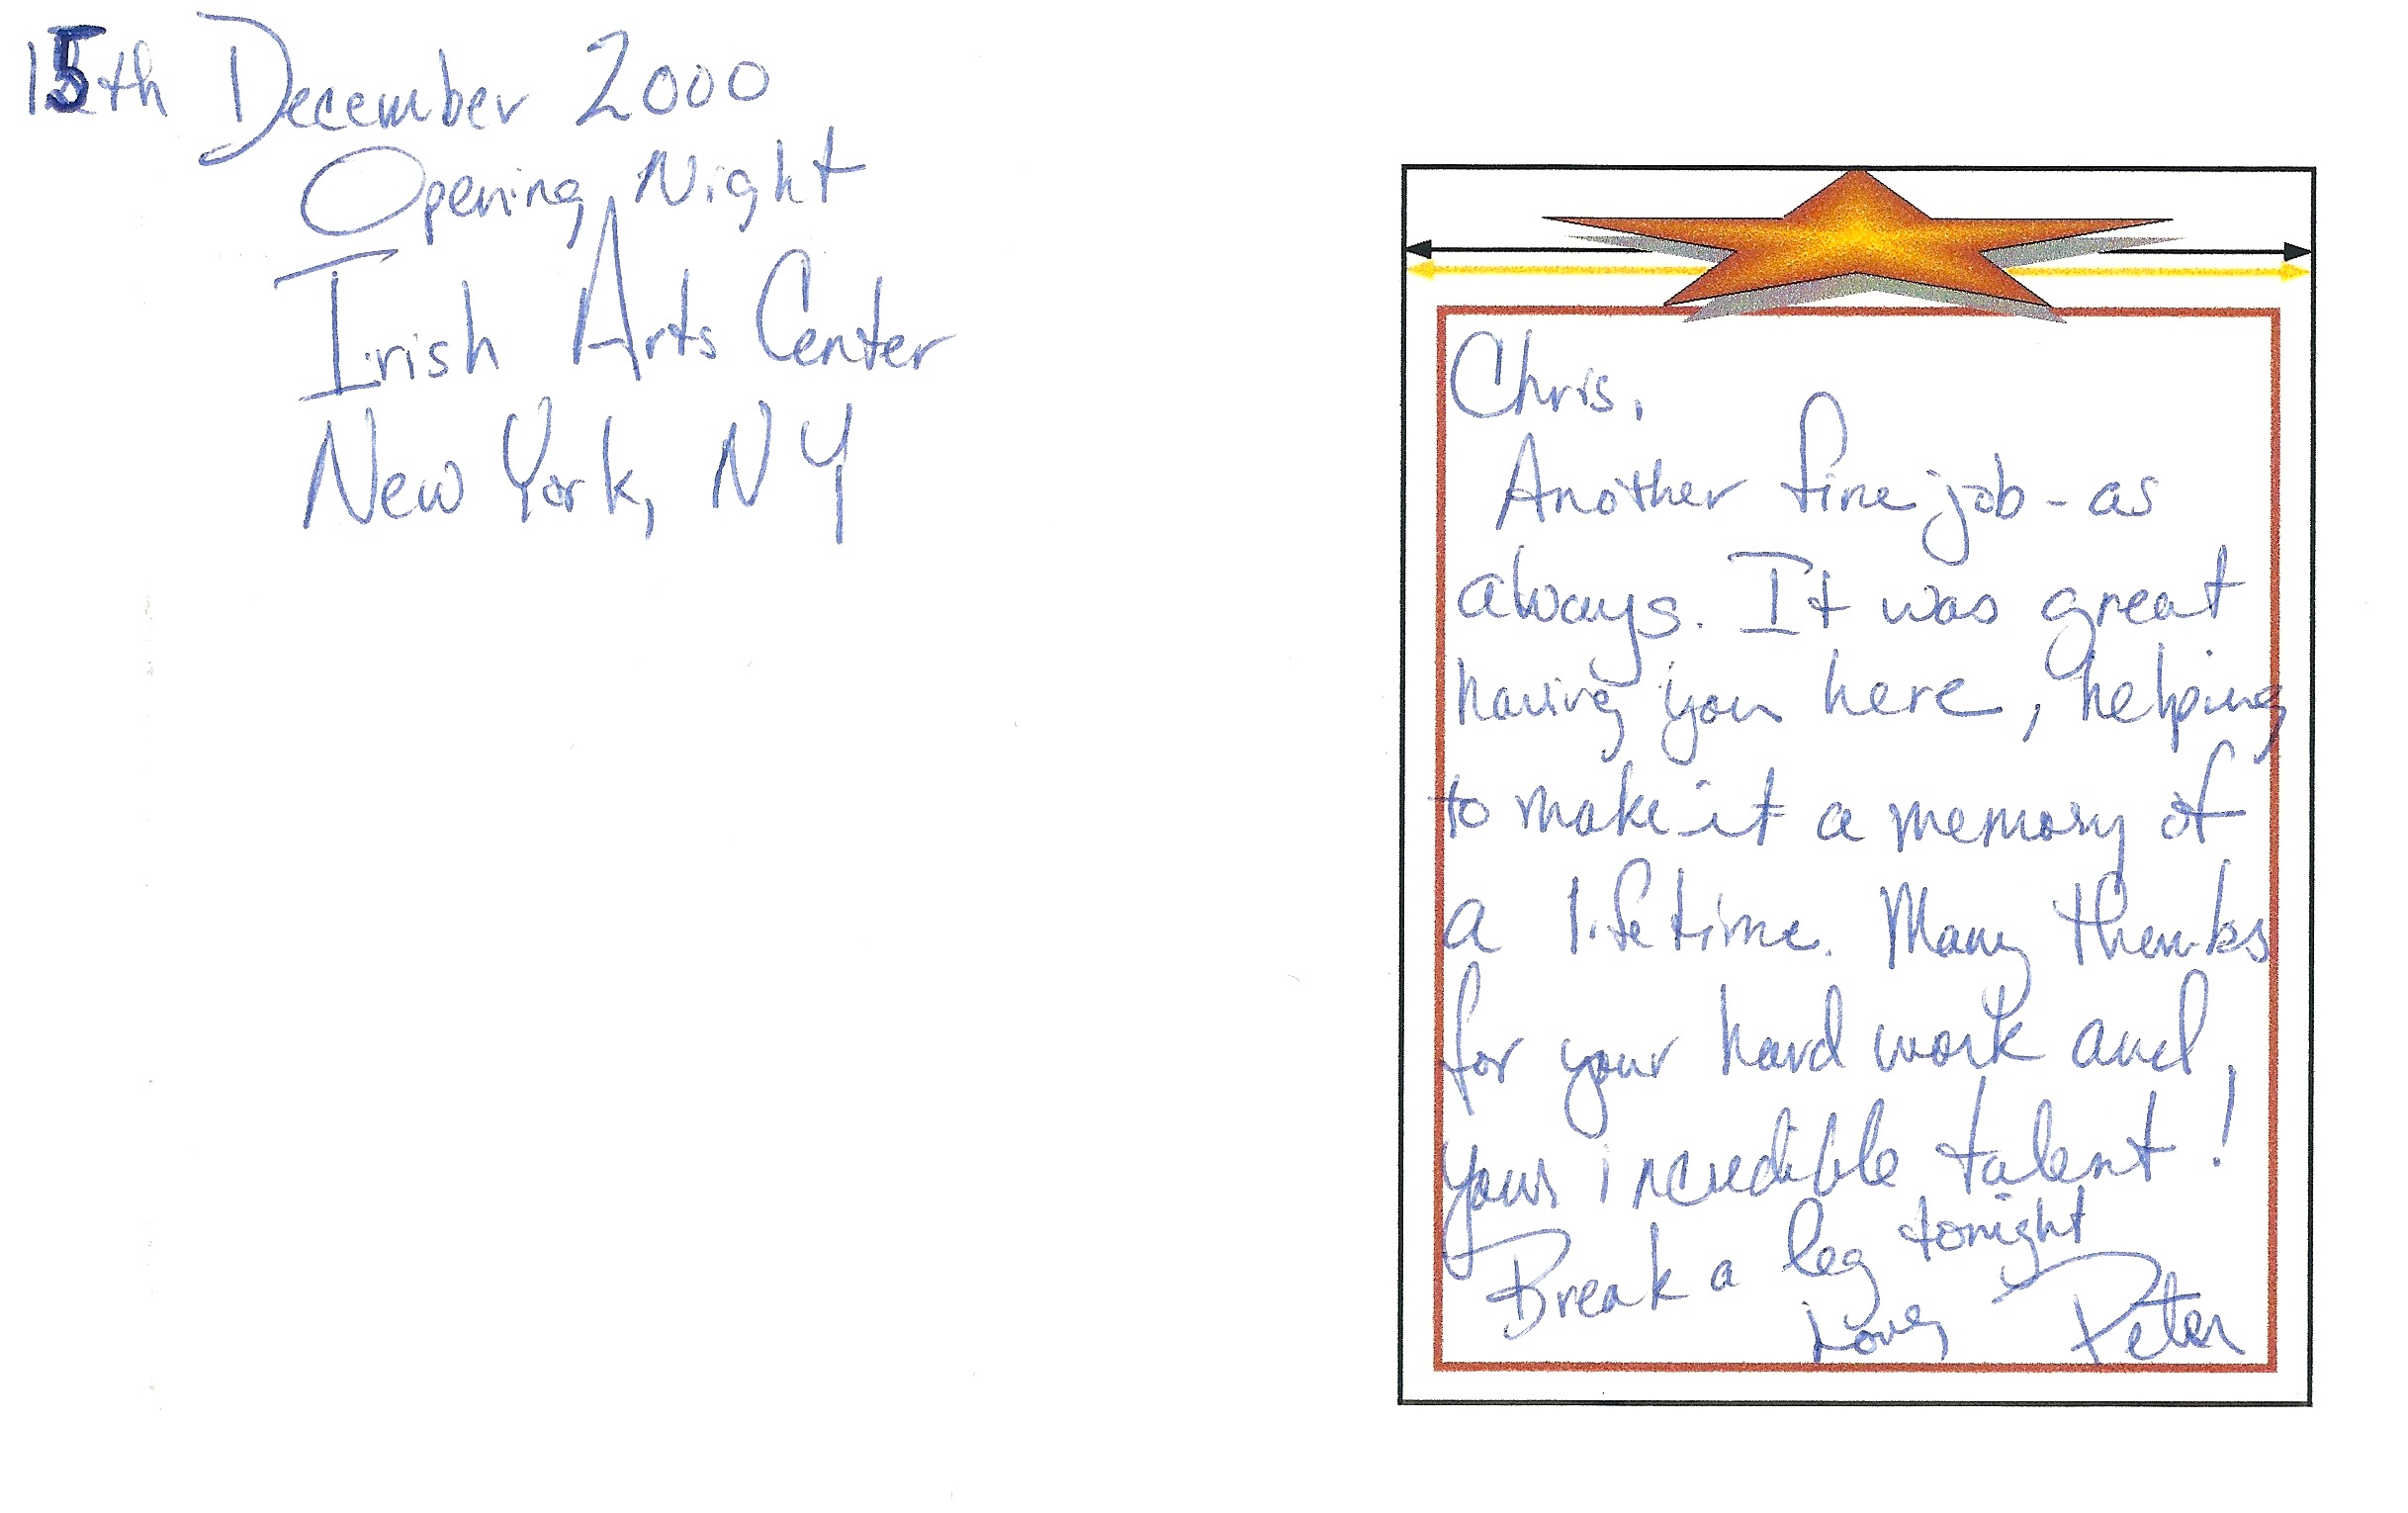 15th December 2000
Opening Night
Irish Arts Center
New York, NY
Chris,
Another fine job - as
always. It was great
having you here, helping
to make it a memory of
a lifetime. Many thanks
for your hard work and
your incredible talent!
Break a leg tonight
Love, Peter